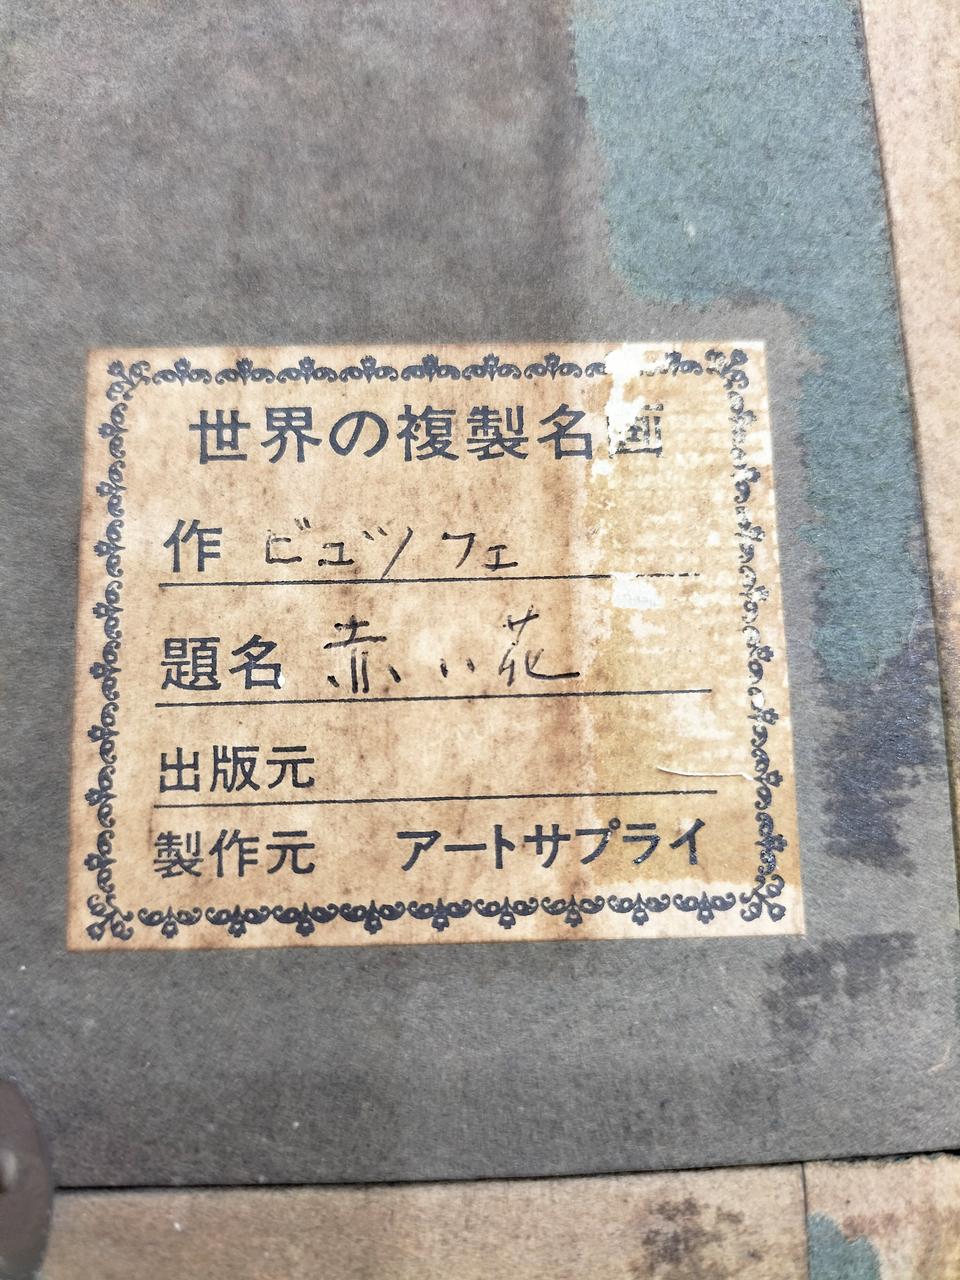 世界の複製名画
作 ビュッフェ
題名 赤い花
出版元
製作元 アートサプライ